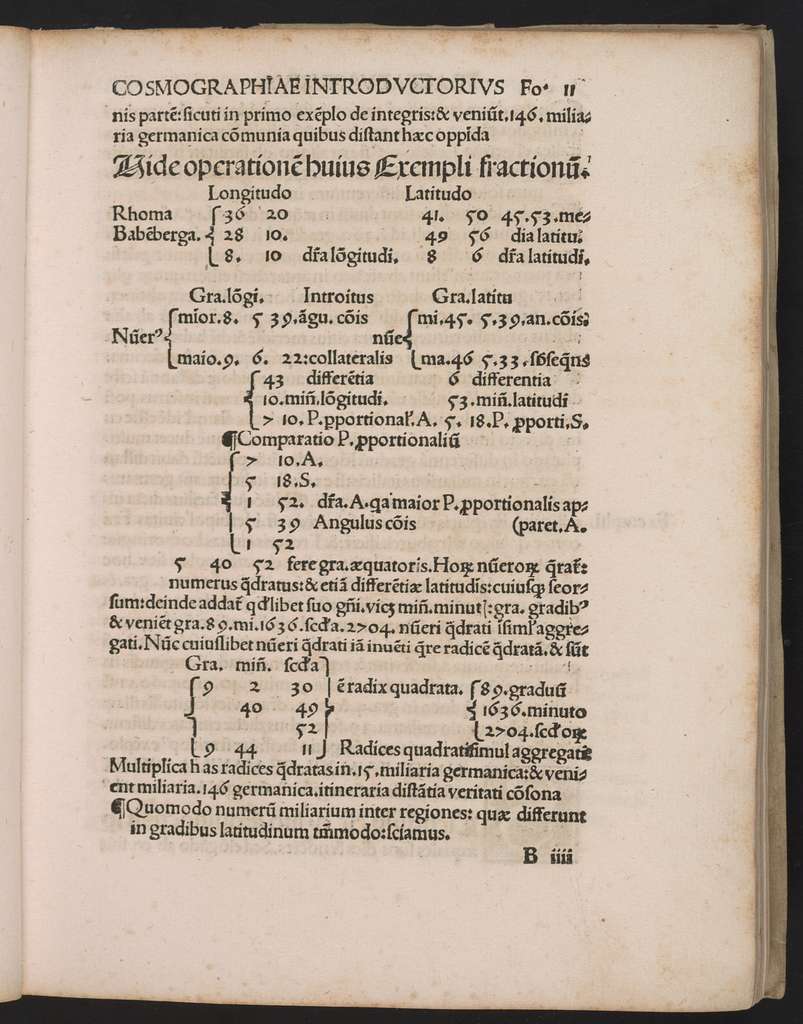 COSMOGRAPHIAE INTRODVCTORIVS Fo. II
nis partē:sicuti in primo exēplo de integris:& veniūt.146.milia⸗
ria germanica cōmunia quibus distant hæc oppida
Uide operationē huius Exempli fractionū.
Longitudo Latitudo
Rhoma 36 20 41. 50 45.53.me⸗
Babēberga. 28 10. 49 56 dia latitu.
8. 10 dr̄a lōgitudi. 8 6 dr̄a latitudi.
Gra.lōgi. Introitus Gra.latitu
mior.8. 5 39.āgu.cōis mi.45. 5.39.an.cōis.
Nūerꝰ nūe
maio.9. 6. 22:collateralis ma.46 5.33.sb̄seq̄ns
43 differētia 6 differentia
10.min̄.lōgitudi. 53.min̄.latitudi
> 10.P.ꝓportional'.A. 5. 18.P.ꝓporti.S.
¶Comparatio P.ꝓportionaliū
> 10.A.
5 18.S.
1 52. dr̄a.A.qa maior P.ꝓportionalis ap⸗
5 39 Angulus cōis (paret.A.
1 52
5 40 52 fere gra.æquatoris.Hoꝝ nūeroꝝ q̄rat̄:
numerus q̄dratus:& etiā differētiæ latitudis:cuiusꝗ seor⸗
sum:deinde addat̄ qd'libet suo gn̄i.vicꝫ min̄.minut:gra. gradibꝰ
& veniēt gra.89.mi.1636.scd'a.2704. nūeri q̄drati īsiml' aggre⸗
gati.Nūc cuiuslibet nūeri q̄drati iā inuēti q̄re radicē q̄dratā.& sūt
Gra. min̄. scd'a
9 2 30 ē radix quadrata. 89.graduū
40 49 1636.minuto
52 2704.scd'oꝝ
9 44 11 Radices quadrati simul aggregatis
Multiplica h as radices q̄dratas in.15.miliaria germanica:& veni⸗
ent miliaria.146 germanica.itineraria distātia veritati cōsona
¶Quomodo numerū miliarium inter regiones: quæ differunt
in gradibus latitudinum tm̄modo:sciamus.
B iiii